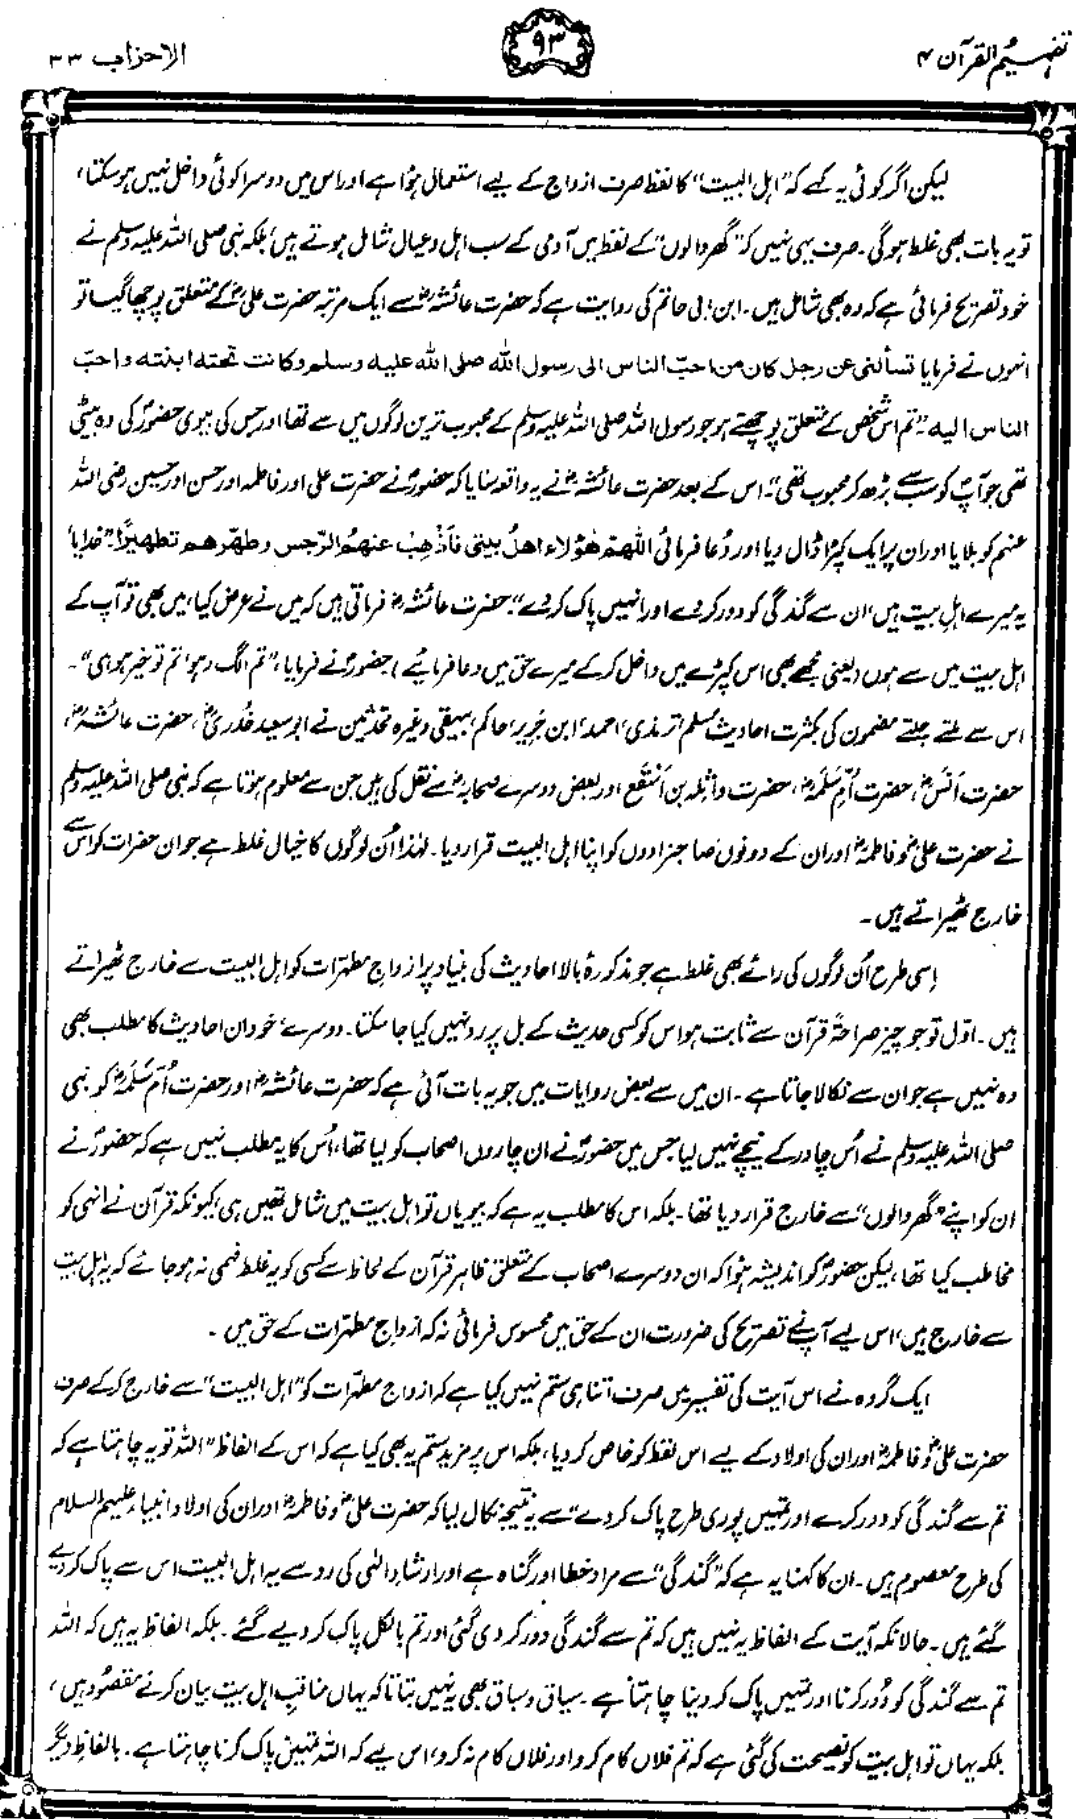 تفہیم القرآن ۴
۹۳
الاحزاب ۳۳
لیکن اگر کوئی یہ کہے کہ "اہل البیت" کا لفظ صرف ازواج کے لیے استعمال ہوا ہے اور اس میں دوسرا کوئی داخل نہیں ہو سکتا،
تو یہ بات بھی غلط ہوگی۔ صرف یہی نہیں کہ "گھر والوں" کے لفظ میں آدمی کے سب اہل و عیال شامل ہوتے ہیں، بلکہ نبی صلی اللہ علیہ وسلم نے
خود تصریح فرمائی ہے کہ وہ بھی شامل ہیں۔ ابن ابی حاتم کی روایت ہے کہ حضرت عائشہؓ سے ایک مرتبہ حضرت علیؓ کے متعلق پوچھا گیا تو
انہوں نے فرمایا تسألنی عن رجل کان من احبّ الناس الی رسول اللہ صلی اللہ علیہ وسلم وکانت تحتہ ابنتہ واحبّ
الناس الیہ۔ "تم اس شخص کے متعلق پوچھتے ہو جو رسول اللہ صلی اللہ علیہ وسلم کے محبوب ترین لوگوں میں سے تھا اور جس کی بیوی حضورؐ کی وہ بیٹی
تھی جو آپؐ کو سب سے بڑھ کر محبوب تھی"۔ اس کے بعد حضرت عائشہؓ نے یہ واقعہ سنایا کہ حضورؐ نے حضرت علی اور فاطمہ اور حسن اور حسین رضی اللہ
عنہم کو بلایا اور ان پر ایک کپڑا ڈال دیا اور دُعا فرمائی اللھمّ ھٰؤلاء اھلُ بیتی فَاَذْھِبْ عنھمُ الرّجس وطھّرھم تطھیرًا۔ "خدایا!
یہ میرے اہلِ بیت ہیں، ان سے گندگی کو دور کر دے اور انہیں پاک کر دے"۔ حضرت عائشہؓ فرماتی ہیں کہ میں نے عرض کیا، میں بھی تو آپ کے
اہل بیت میں سے ہوں (یعنی مجھے بھی اس کپڑے میں داخل کر کے میرے حق میں دعا فرمائیے) حضورؐ نے فرمایا، "تم الگ رہو، تم تو خیر ہو ہی"۔
اس سے ملتے جلتے مضمون کی بکثرت احادیث مسلم، ترمذی، احمد، ابن جریر، حاکم، بیہقی وغیرہ محدثین نے ابو سعید خُدریؓ، حضرت عائشہؓ،
حضرت اَنَسؓ، حضرت اُمِّ سَلَمہؓ، حضرت واثلہ بن اَسْقَع اور بعض دوسرے صحابہؓ سے نقل کی ہیں جن سے معلوم ہوتا ہے کہ نبی صلی اللہ علیہ وسلم
نے حضرت علیؓ و فاطمہؓ اور ان کے دونوں صاجزادوں کو اپنا اہل البیت قرار دیا۔ لہٰذا اُن لوگوں کا خیال غلط ہے جو ان حضرات کو اس سے
خارج ٹھیراتے ہیں۔
اِسی طرح اُن لوگوں کی رائے بھی غلط ہے جو مذکورۂ بالا احادیث کی بنیاد پر ازواجِ مطہّرات کو اہل البیت سے خارج ٹھیراتے
ہیں۔ اوّل تو جو چیز صراحۃً قرآن سے ثابت ہو اس کو کسی حدیث کے بل پر رد نہیں کیا جا سکتا۔ دوسرے، خود ان احادیث کا مطلب بھی
وہ نہیں ہے جو ان سے نکالا جاتا ہے۔ ان میں سے بعض روایات میں جو یہ بات آئی ہے کہ حضرت عائشہؓ اور حضرت اُمِّ سَلَمہؓ کو نبی
صلی اللہ علیہ وسلم نے اُس چادر کے نیچے نہیں لیا جس میں حضورؐ نے ان چاروں اصحاب کو لیا تھا، اُس کا یہ مطلب نہیں ہے کہ حضورؐ نے
ان کو اپنے "گھر والوں" سے خارج قرار دیا تھا۔ بلکہ اس کا مطلب یہ ہے کہ بیویاں تو اہل بیت میں شامل تھیں ہی، کیونکہ قرآن نے انہی کو
مخاطب کیا تھا، لیکن حضورؐ کو اندیشہ ہوا کہ ان دوسرے اصحاب کے متعلق ظاہر قرآن کے لحاظ سے کسی کو یہ غلط فہمی نہ ہو جائے کہ یہ اہل بیت
سے خارج ہیں، اس لیے آپ نے تصریح کی ضرورت ان کے حق میں محسوس فرمائی نہ کہ ازواجِ مطہّرات کے حق میں۔
ایک گروہ نے اس آیت کی تفسیر میں صرف اتنا ہی ستم نہیں کیا ہے کہ ازواج مطہّرات کو "اہل البیت" سے خارج کر کے صرف
حضرت علیؓ و فاطمہؓ اور ان کی اولاد کے لیے اس لفظ کو خاص کر دیا، بلکہ اس پر مزید ستم یہ بھی کیا ہے کہ اس کے الفاظ "اللہ تو یہ چاہتا ہے کہ
تم سے گندگی کو دور کرے اور تمہیں پوری طرح پاک کر دے" سے یہ نتیجہ نکال لیا کہ حضرت علیؓ و فاطمہؓ اور ان کی اولاد انبیاء علیہم السلام
کی طرح معصوم ہیں۔ ان کا کہنا یہ ہے کہ "گندگی" سے مراد خطا اور گناہ ہے اور ارشادِ الٰہی کی رو سے یہ اہل البیت اس سے پاک کر دیے
گئے ہیں۔ حالانکہ آیت کے الفاظ یہ نہیں ہیں کہ تم سے گندگی دور کر دی گئی اور تم بالکل پاک کر دیے گئے۔ بلکہ الفاظ یہ ہیں کہ اللہ
تم سے گندگی کو دُور کرنا اور تمہیں پاک کر دینا چاہتا ہے۔ سیاق و سباق بھی یہ نہیں بتاتا کہ یہاں مناقبِ اہل بیت بیان کرنے مقصُود ہیں،
بلکہ یہاں تو اہل بیت کو نصیحت کی گئی ہے کہ تم فلاں کام کرو اور فلاں کام نہ کرو، اس لیے کہ اللہ تمہیں پاک کرنا چاہتا ہے۔ بالفاظِ دیگر